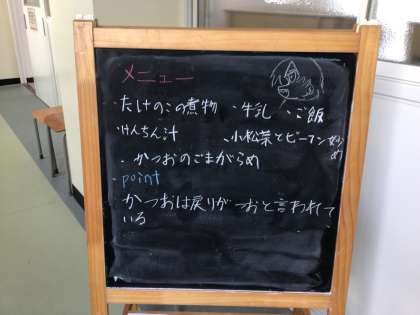 メニュー
・たけのこの煮物 ・牛乳 ・ご飯
・けんちん汁 小松菜とビーフン炒め
・かつおのごまがらめ
・point
かつおは戻りがつおと言われて
いる